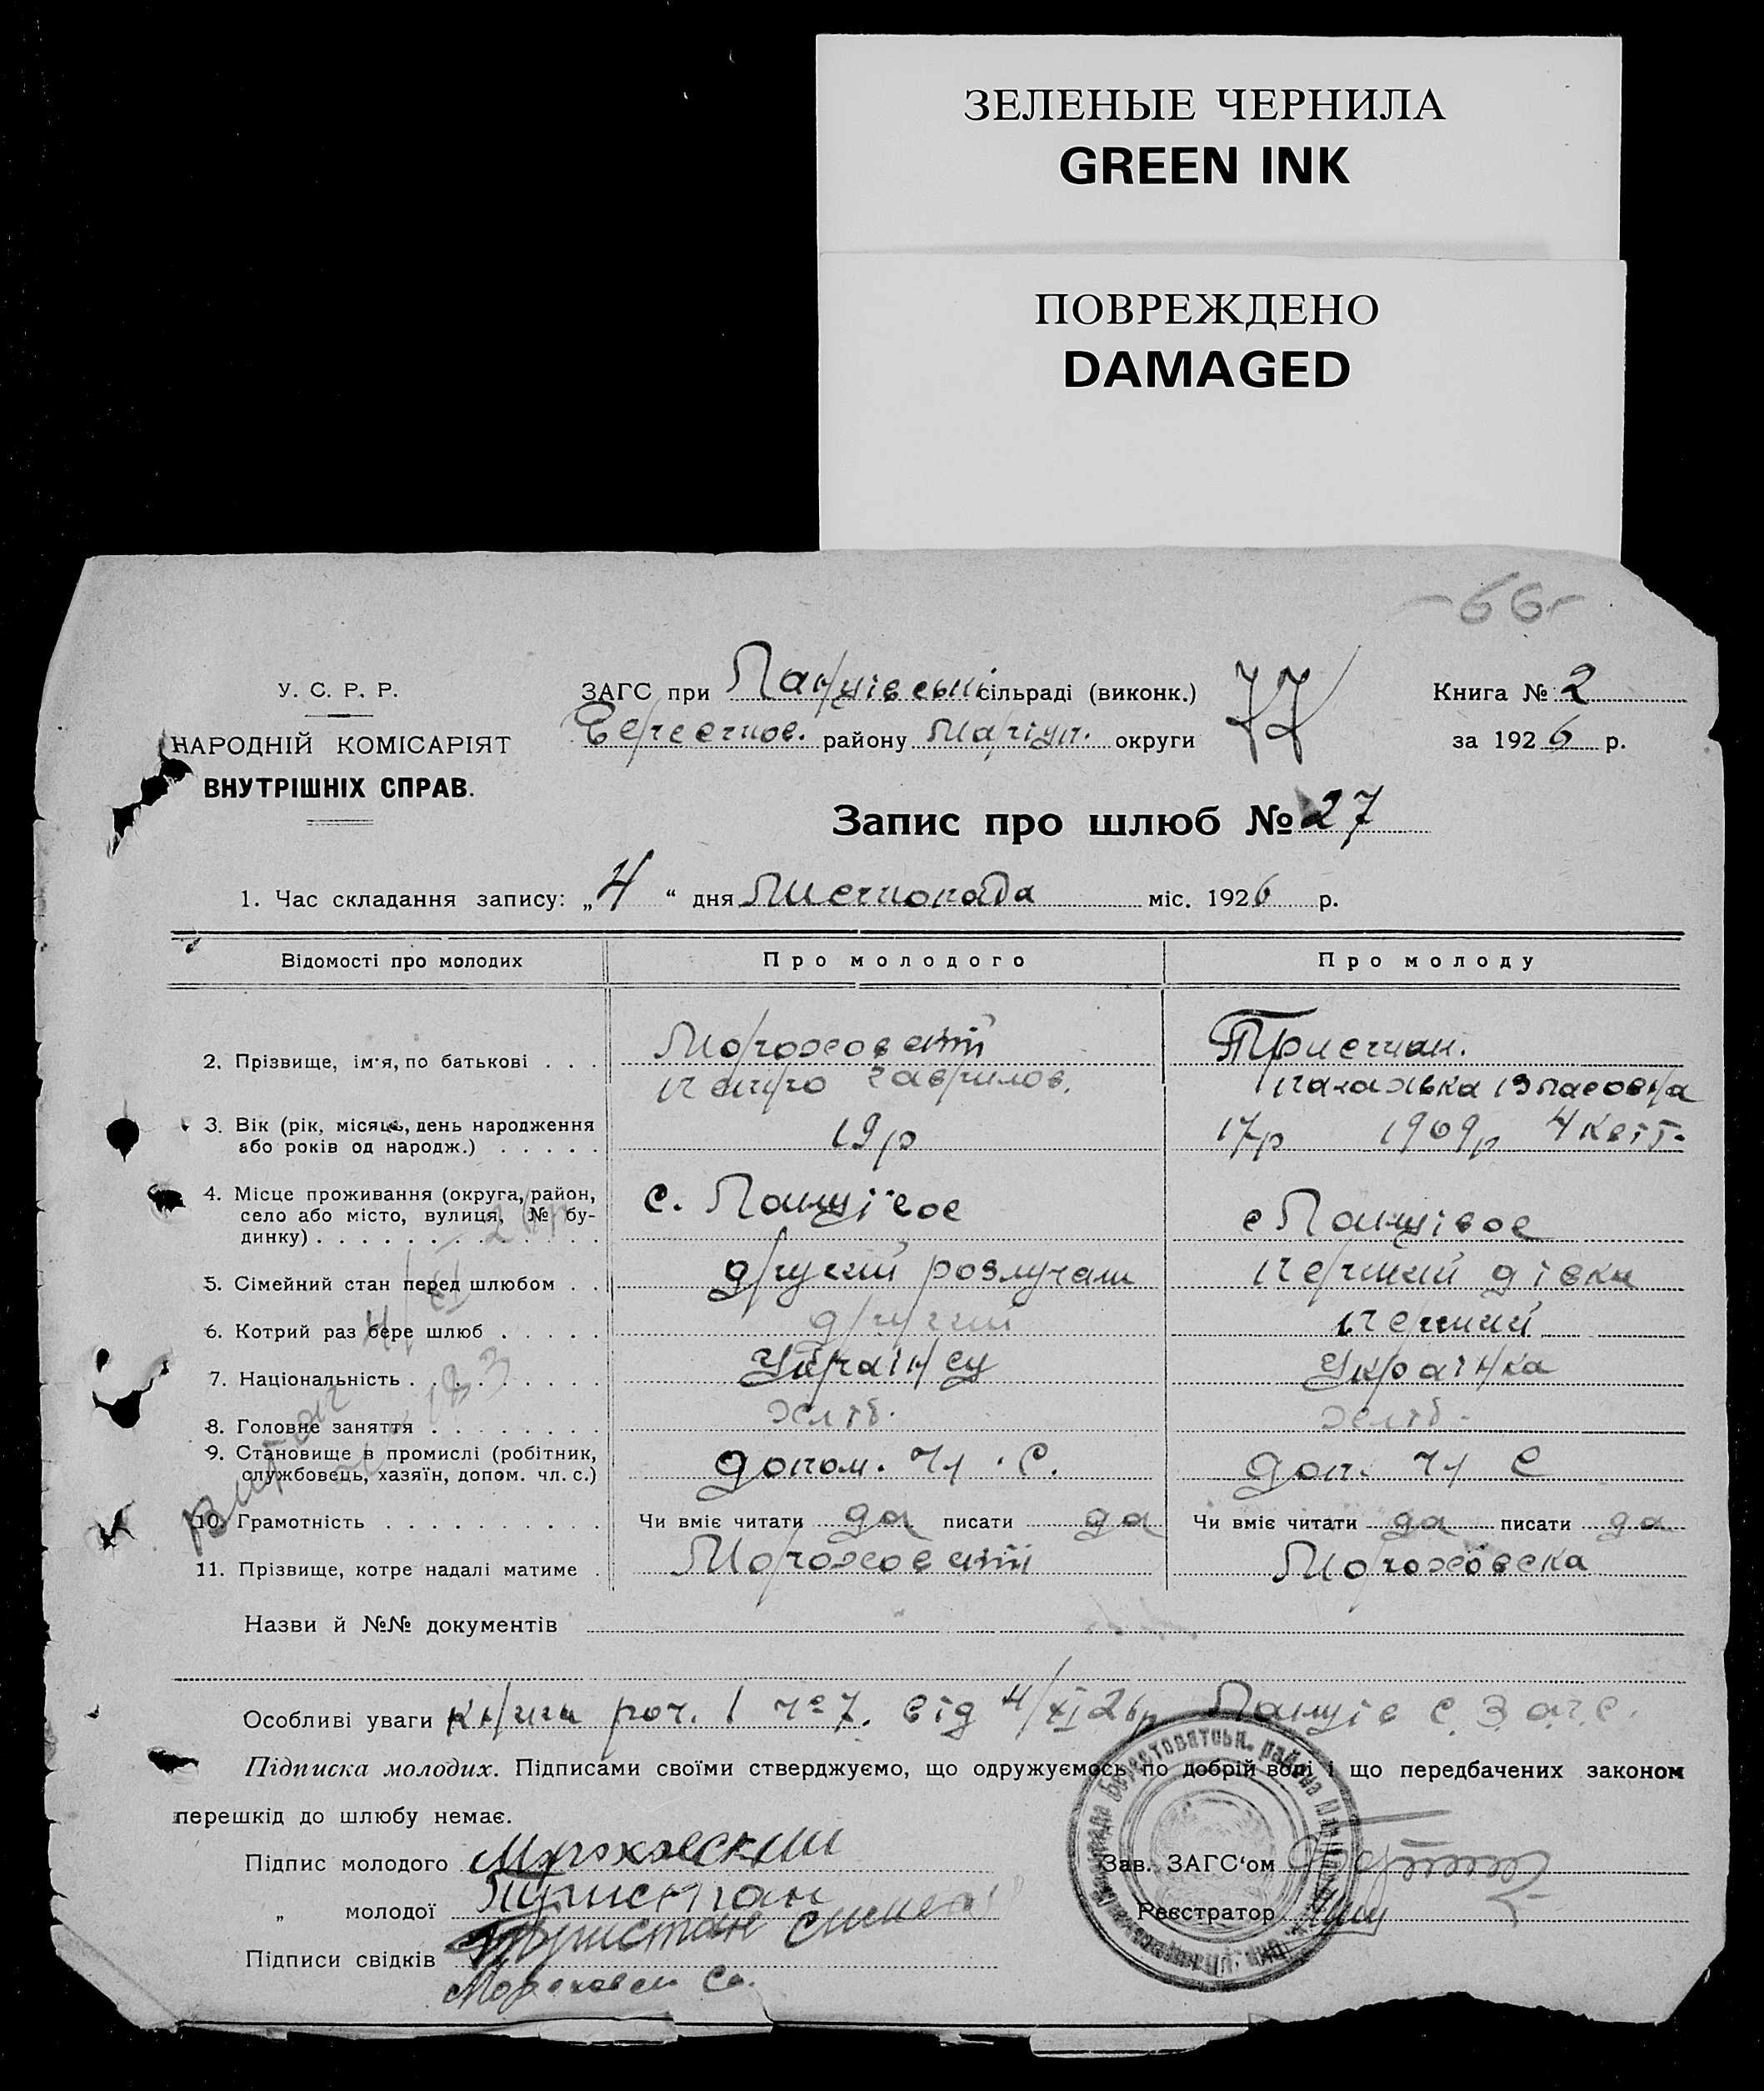 ЗЕЛЕНЫЕ ЧЕРНИЛА
GREEN INK
ПОВРЕЖДЕНО
DAMAGED
-66-
У. С. Р. Р.
НАРОДНІЙ КОМІСАРІЯТ
ВНУТРІШНІХ СПРАВ.
ЗАГС при сільраді (виконк.)
району Маріуп. округи
77
Книга № 2
за 1926 р.
Запис про шлюб № 27
1. Час складання запису: „4“ дня Листопада міс. 1926 р.
Відомості про молодих Про молодого Про молоду
2. Прізвище, ім'я, по батькові . . . Мороховський Тристан.
Петро Гаврилов. Палажка Власовна
3. Вік (рік, місяць, день народження
або років од народж.) . . . . . 19р 17р 1909р 4 квіт.
4. Місце проживання (округа, район,
село або місто, вулиця, № бу-
динку) . . . . . . . . . . . . . с. Панцівое с Панцівое
5. Сімейний стан перед шлюбом . . другий розлучен перший дівка
6. Котрий раз бере шлюб . . . . . другий перший
7. Національність . . . . . . . . . Українец Українка
8. Головне заняття . . . . . . . . хліб. хліб.
9. Становище в промислі (робітник,
службовець, хазяїн, допом. чл. с.) допом. чл. с. доп. чл с
10. Грамотність . . . . . . . . . . Чи вміє читати да писати да Чи вміє читати да писати да
11. Прізвище, котре надалі матиме . Мороховський Мороховска
Назви й №№ документів
Особливі уваги книга роч. 1 № 7. від 4/XI 26р
Підписка молодих. Підписами своїми стверджуємо, що одружуємось по добрій волі і що передбачених законом
перешкід до шлюбу немає.
Підпис молодого Мороховский
„ молодої Тристан
Підписи свідків Тристан
Зав. ЗАГС‘ом
Реєстратор